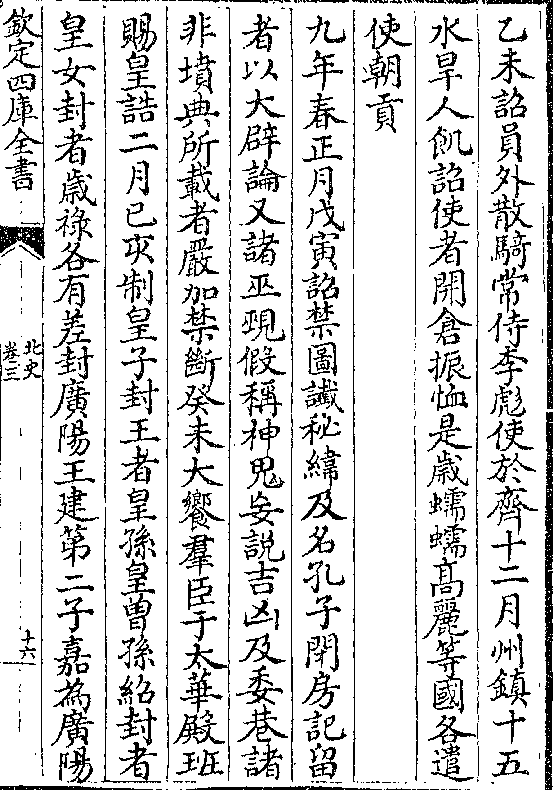 乙未詔員外散騎常侍李彪使於齊十二月州鎮十五
水旱人飢詔使者開倉振恤是歲蠕蠕高麗等國各遣
使朝貢
九年春正月戊寅詔禁圖讖秘緯及名孔子閉房記留
者以大辟論又諸巫覡假稱神鬼妄説吉凶及委巷諸
非墳典所載者嚴加禁斷癸未大饗羣臣于太華殿班
賜皇誥二月己亥制皇子封王者皇孫皇曽孫紹封者
皇女封者歲祿各有差封廣陽王建第二子嘉為廣陽
欽定四庫全書
北史
卷三
十六